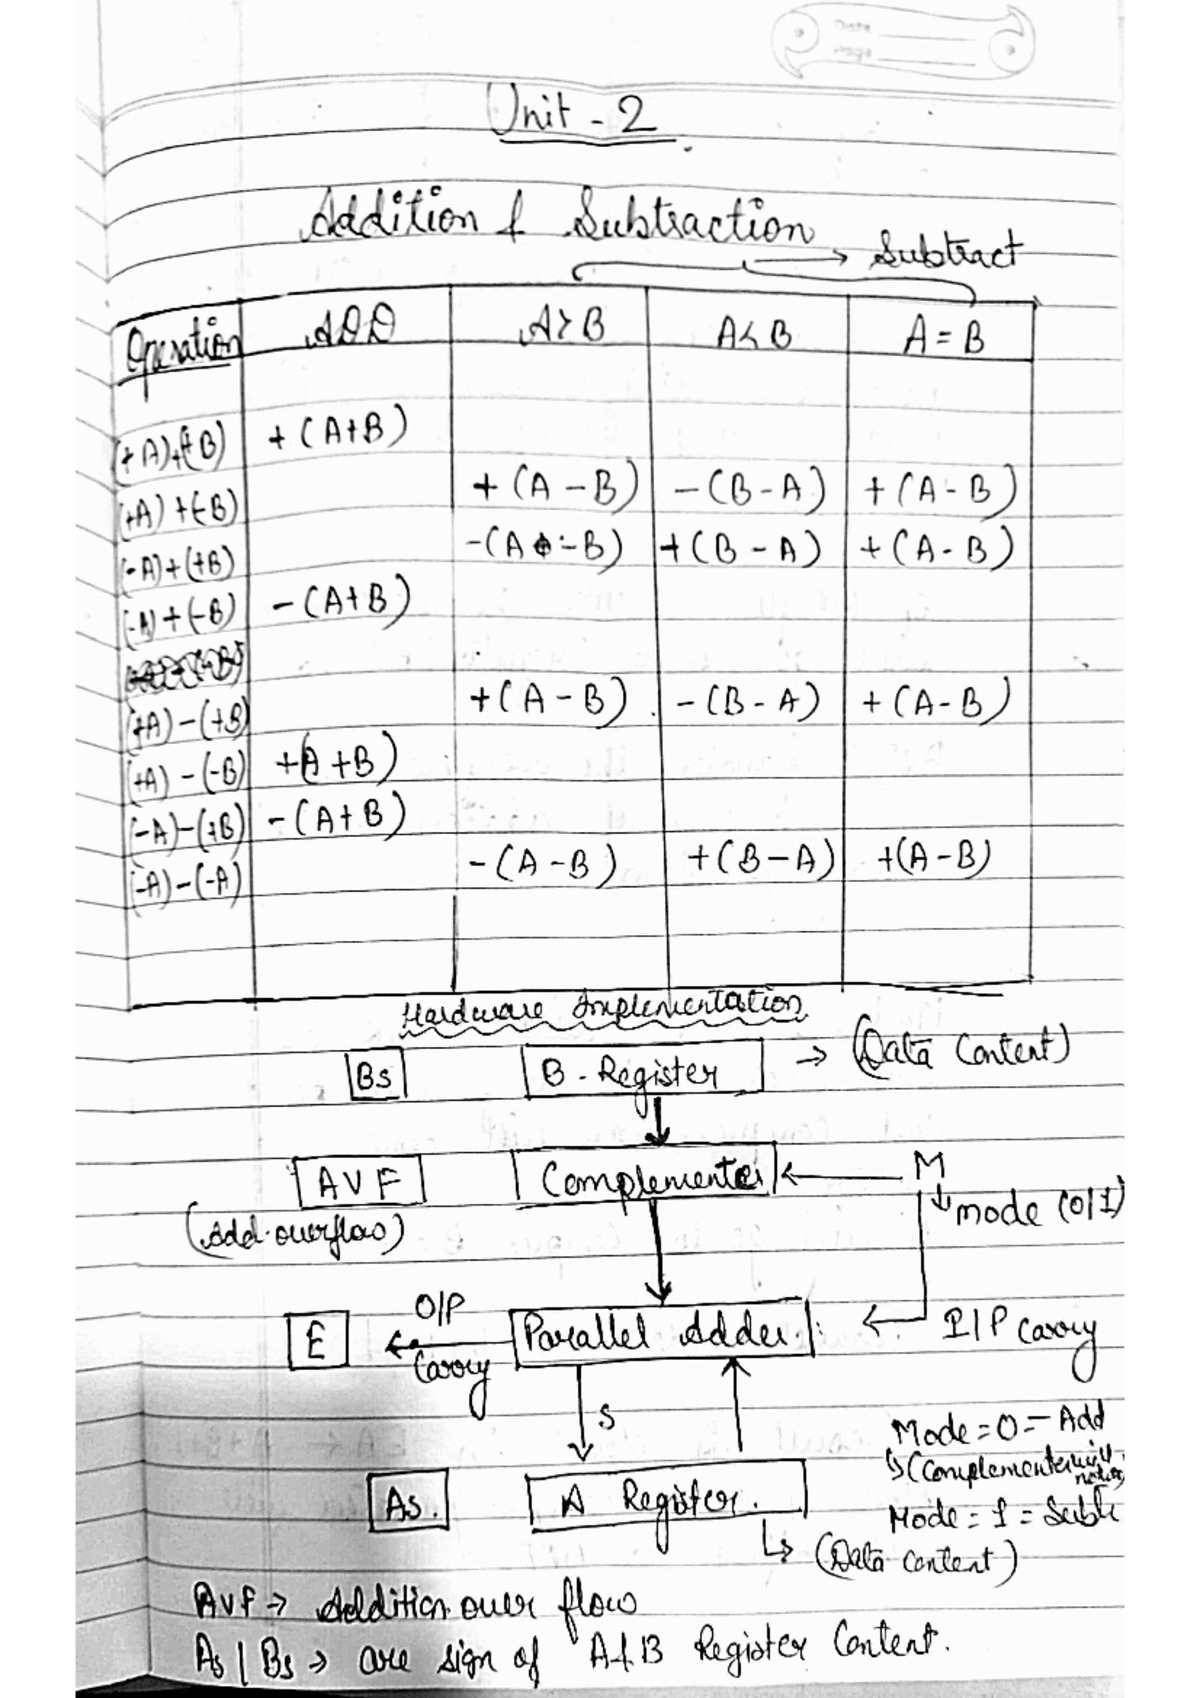 Date
Page
Unit - 2
Addition & Subtraction
→ Subtract
Operation ADD A>B A<B A = B
(+A)+(+B) +(A+B)
(+A)+(-B) +(A-B) -(B-A) +(A-B)
(-A)+(+B) -(A-B) +(B-A) +(A-B)
(-A)+(-B) -(A+B)
(+A)-(+B) +(A-B) -(B-A) +(A-B)
(+A)-(-B) +(A+B)
(-A)-(+B) -(A+B)
(-A)-(-A) -(A-B) +(B-A) +(A-B)
Hardware Implementation
Bs B-Register → (Data Content)
AVF Complementer M
(Add.overflow) mode (0/1)
E O/P Carry Parallel Adder. I/P carry
S
Mode=0=Add
↳(Complementer will
Mode=1=Subt
As. A Register.
↳ (Data content)
AVF → Addition over flow
As | Bs → are sign of A & B Register Content.